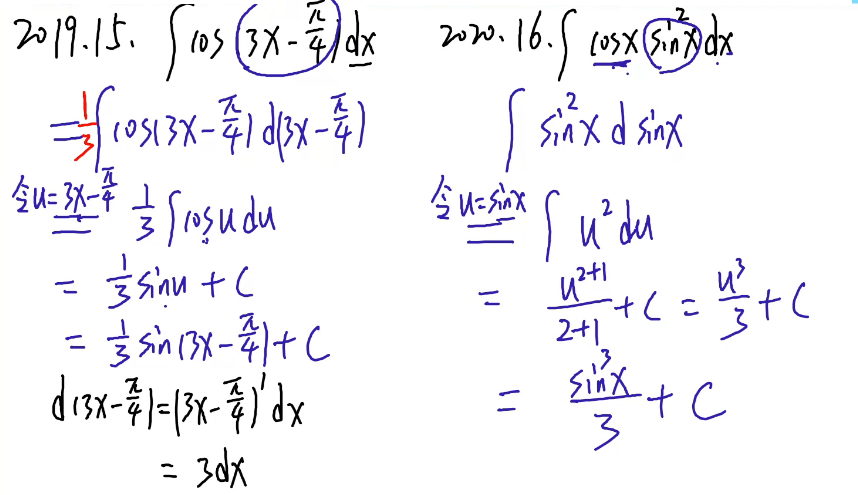 2019.15. ∫cos(3x-π/4)dx
=1/3∫cos(3x-π/4)d(3x-π/4)
令u=3x-π/4 = 1/3∫cosudu
= 1/3 sinu + C
= 1/3 sin(3x-π/4)+C
d(3x-π/4)=(3x-π/4)'dx
= 3dx
2020.16. ∫cosx sin²x dx
∫sin²x d sinx
令u=sinx = ∫u²du
= u²⁺¹/2+1 + C = u³/3 + C
= sin³x/3 + C